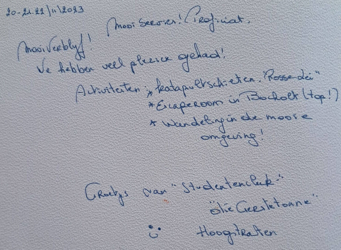 20-21-22/11/2023
Mooi Servies! Proficiat.
Mooi Verblijf!
We hebben veel plezier gehad!
Activiteiten: * Katapultschieten
* Escaperoom in Bocholt (top!)
* Wandeling in de mooie
omgeving!
Groetjes van "Studentenclub"
Hoogstraten